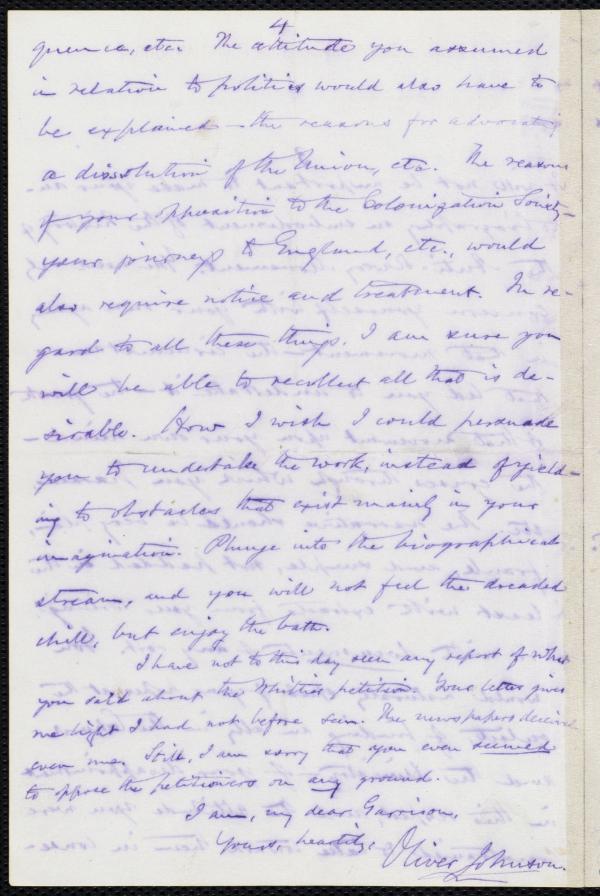 4
quence, etc. The attitude you assumed
in relation to politics would also have to
be explained—the reasons for advocating
a dissolution of the Union, etc. The reasons
of your opposition to the Colonization Society—
your journeys to England, etc., would
also require notice and treatment. In re-
gard to all these things, I am sure you
will be able to recollect all that is de-
sirable. How I wish I could persuade
you to undertake the work, instead of yield-
ing to obstacles that exist mainly in your
imagination. Plunge into the biographical
stream, and you will not feel the dreaded
chill, but enjoy the bath.
I have not to this day seen any report of what
you said about the Whittier petition. Your letter gives
me light I had not before seen. The newspapers deceived
even me. Still, I am sorry that you even seemed
to oppose the petitioners on any ground.
I am, my dear Garrison,
Yours, heartily,
Oliver Johnson.